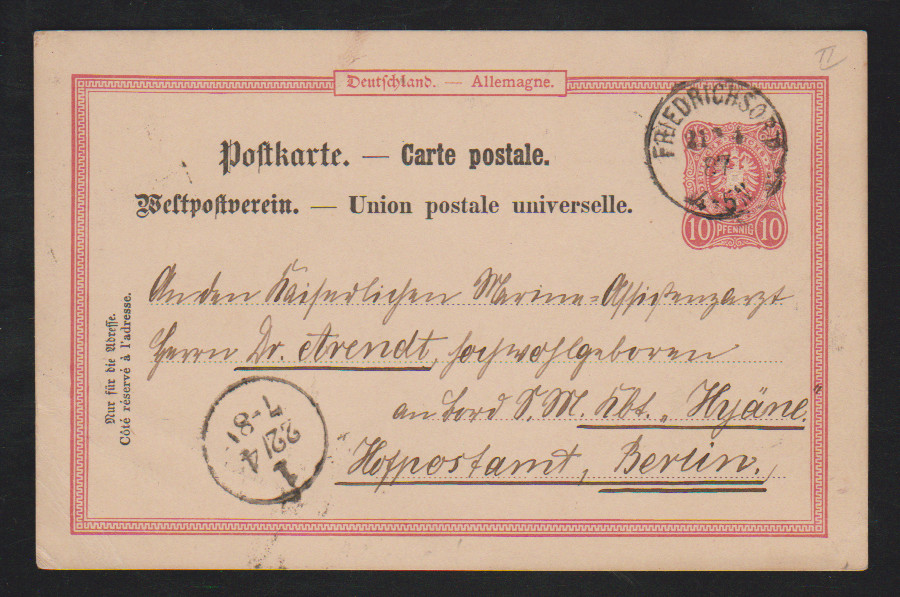 Deutschland. — Allemagne.
Postkarte. — Carte postale.
Weltpostverein. — Union postale universelle.
FRIEDRICHSORT
21 4
87
4-5N
10 PFENNIG 10
Nur für die Adresse.
Côté réservé à l'adresse.
An den Kaiserlichen Marine-Assistenzarzt
Herrn Dr. Arendt, Hochwohlgeboren
an Bord S. M. Kbt. „Hyäne“
Hofpostamt, Berlin.
1
22/4
7-8
II